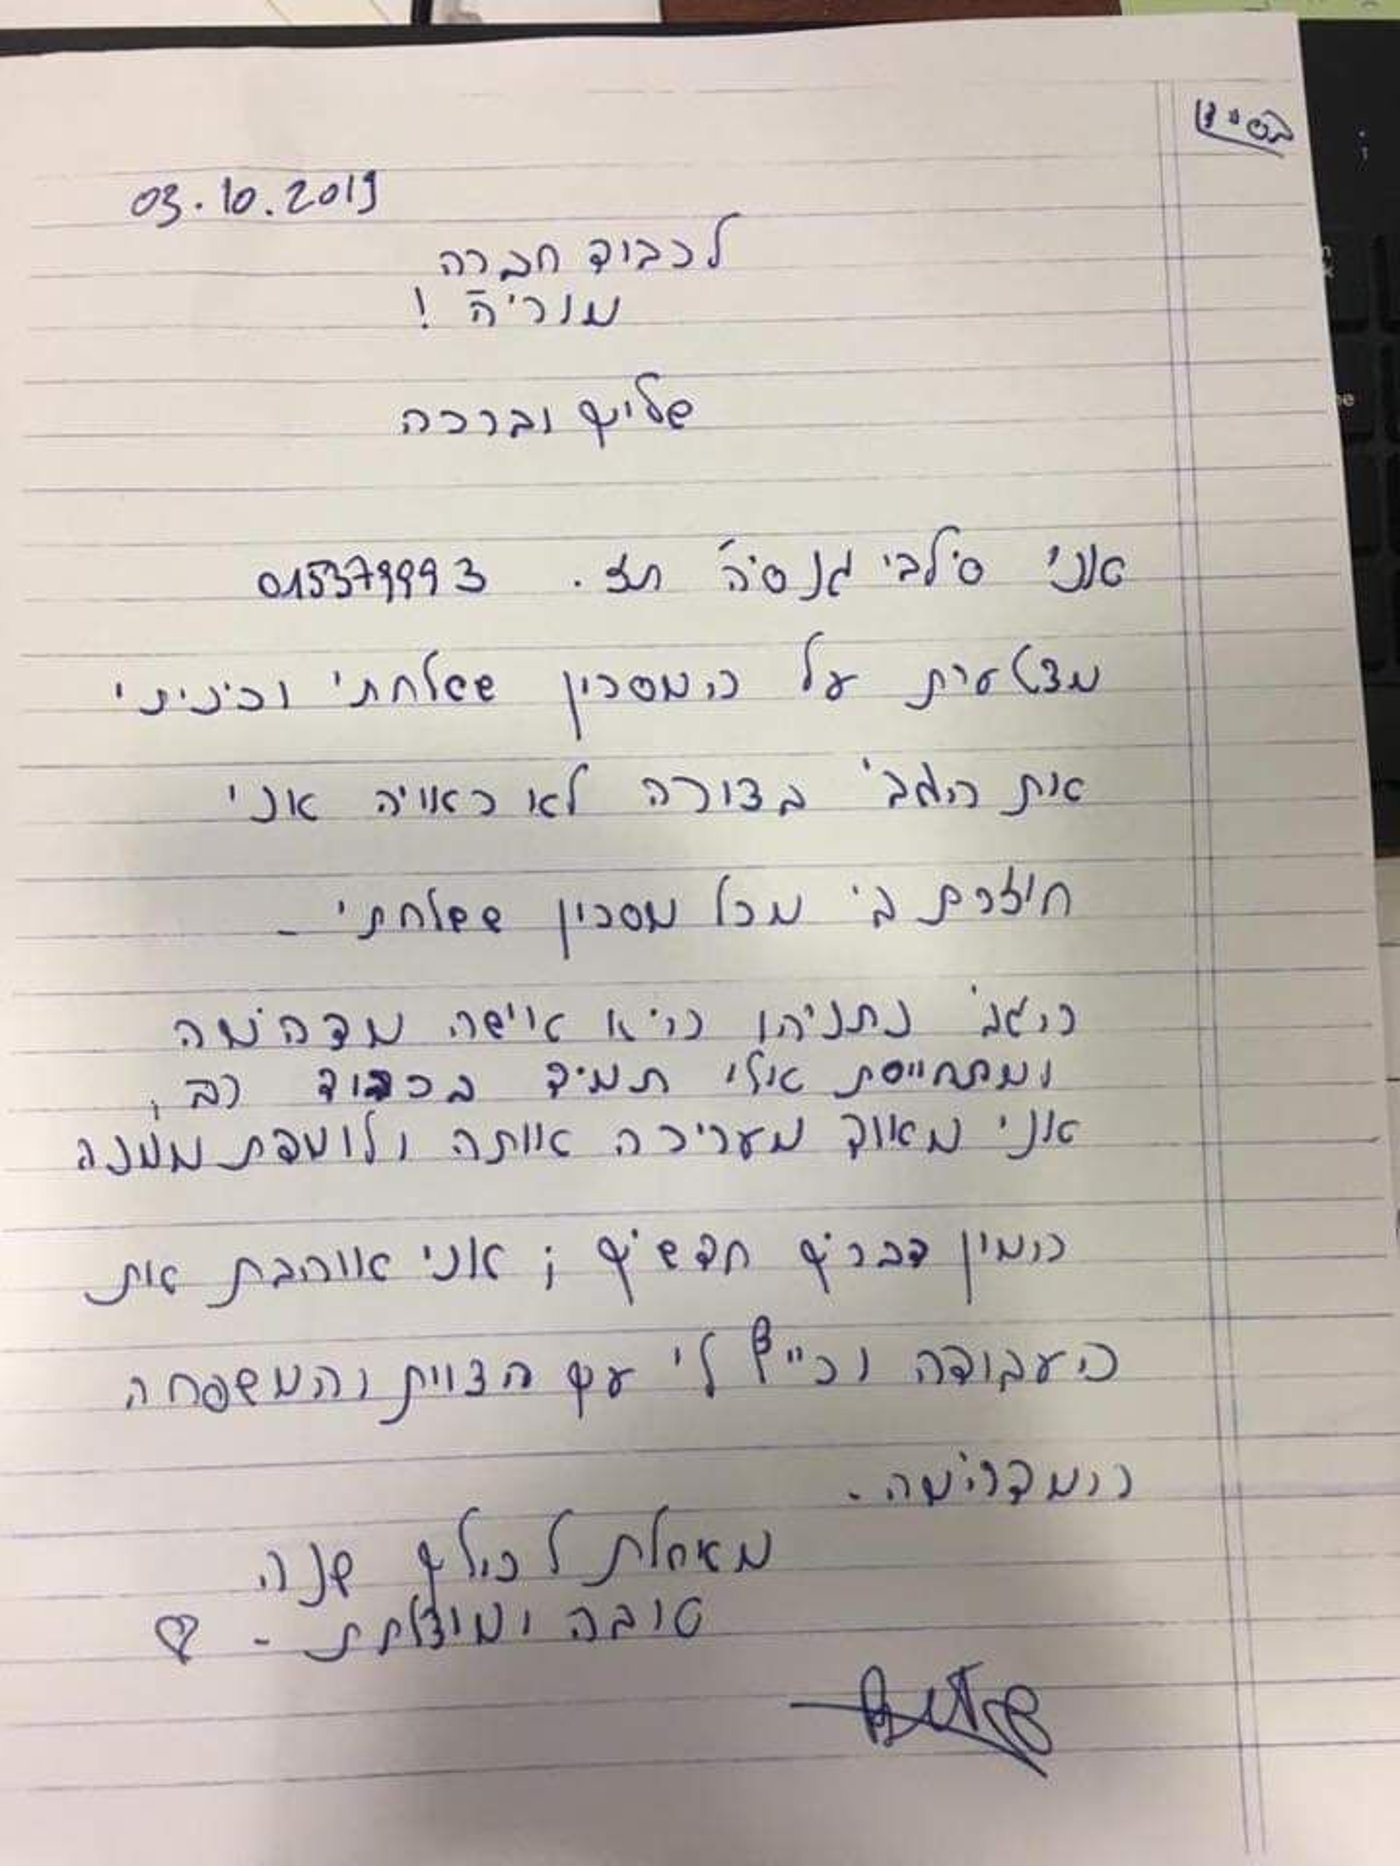 בס"ד
03.10.2019
לכבוד חברה
מוריה !
שלום וברכה
אני סילבי גנסיה תז. 015379993
מצטערת על המסרון ששלחתי וכיניתי
את הגב' בצורה לא ראויה אני
חוזרת בי מכל מסרון ששלחתי -
הגב' נתניהו היא אישה מדהימה
ומתחייסת אלי תמיד בכבוד רב ,
אני מאוד מעריכה אותה ולומדת ממנה
המון דברים חדשים ; אני אוהבת את
העבודה וכייף לי עם הצוות והמשפחה
המדהימה .
מאחלת לכולם שנה
טובה ומוצלחת - ♡